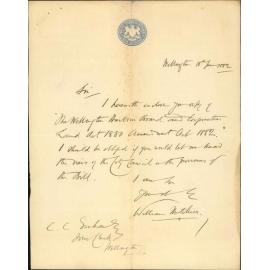 Wellington 18th June 1882
Sir
I herewith enclose you copy of
"The Wellington Harbour Board and Corporation
Land Act 1880 Amendment Act 1882."
I should be obliged if you would let me know
the views of the City Council on the provisions of
the Bill.
I am Sir
William Hutchison
C. C.
Town Clerk
Wellington